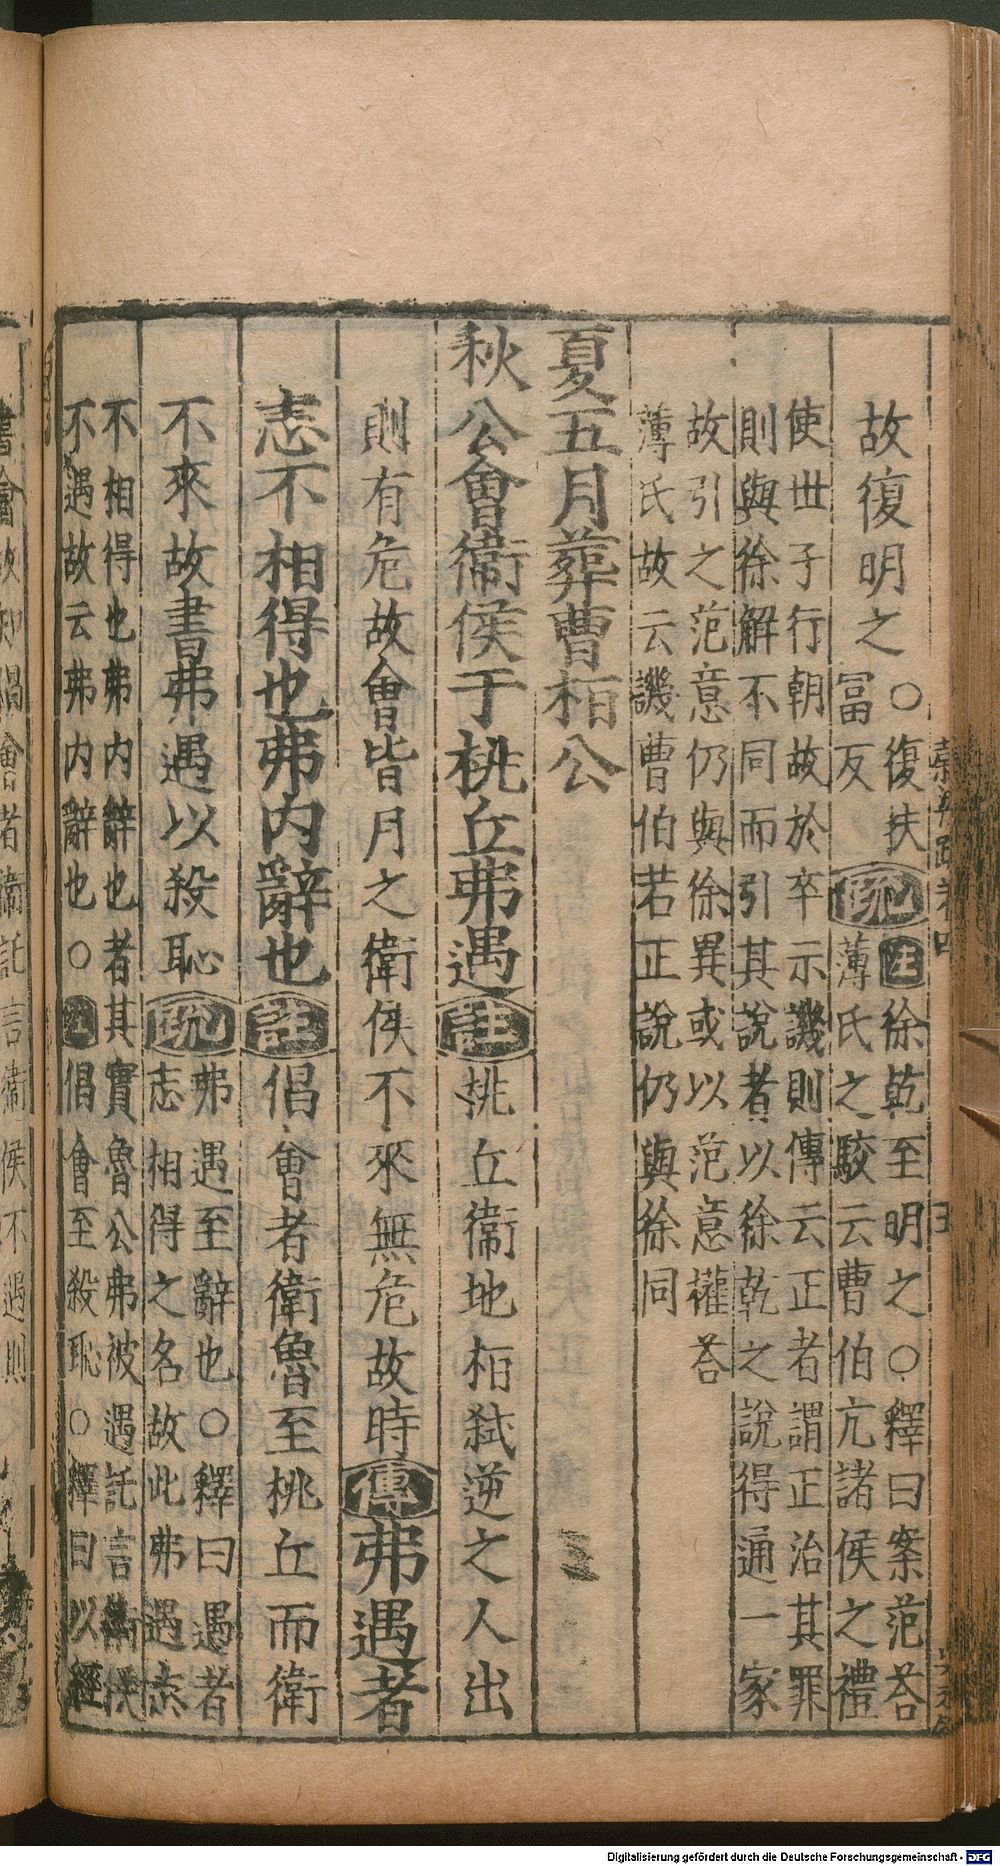 故復明之○復扶
冨反
疏
注徐乾至明之○釋曰案范荅
薄氏之駮云曹伯亢諸侯之禮
使世子行朝故於卒示譏則傳云正者謂正治其罪
則與徐解不同而引其說者以徐乾之說得通一家
故引之范意仍與徐異或以范意權荅
薄氏故云譏曹伯若正說仍與徐同
夏五月葬曹桓公
秋公會衞侯于桃丘弗遇註桃丘衞地桓弑逆之人出
則有危故會皆月之衛侯不來無危故時傳弗遇者
志不相得也弗内辭也註倡會者衛魯至桃丘而衛
不來故書弗遇以殺恥疏
弗遇至辭也○釋曰遇者
志相得之名故此弗遇志
不相得也弗内辭也者其實魯公弗被遇託言衛侯
不遇故云弗内辭也○注倡會至殺恥○釋曰以經
書會故知倡會者衞託言衞侯不遇則
Digitalisierung gefördert durch die Deutsche Forschungsgemeinschaft - DFG